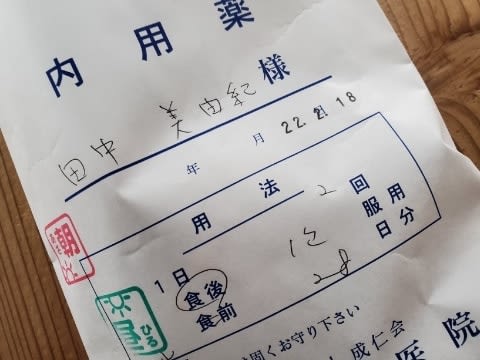 内用薬
田中 美由紀様
年 月 22.2.18
用法
朝
1日 2回
食後 服用
食前 28 日分
昼 ひる
聞くお守り下さい
成仁会
医院